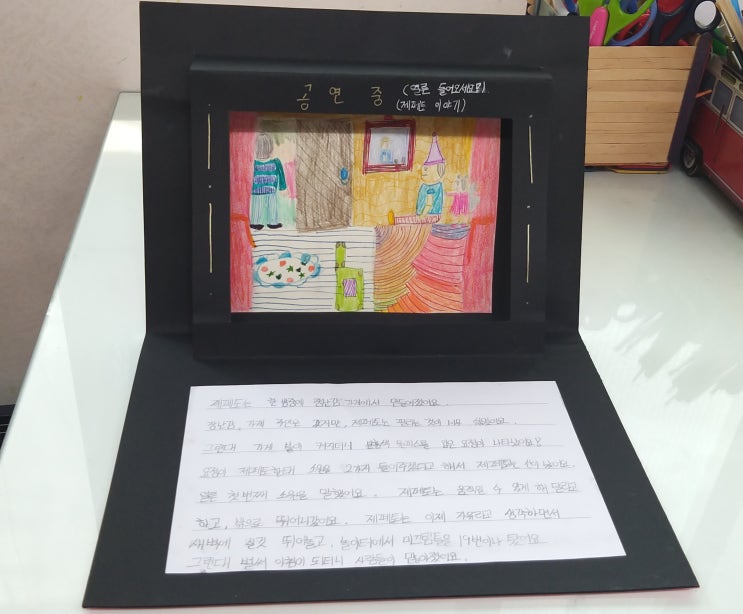 공연중
(얼른 들어오세요!!)
(제페토 이야기)
제페토는 한 평생이 장난감 가게에서 만들어졌어요.
장난감, 가게 주인은 제페토는 것이 너무 싫었어요.
그런데 가게 불이 꺼지더니 원피스를 입은 요정이 나타났어요?
요정이 제페토한테 소원을 2가지 들어주겠다고 해서 제페토는 신이 났어요.
얼른 첫번째 소원을 말했어요. 제페토는 움직일 수 있게 해 달라고
하고, 밖으로 뛰어나갔어요. 제페토는 이제 자유라고 생각하면서
새벽에 실컷 뛰어놀고, 놀이터에서 미끄럼틀을 19번이나 탔어요.
그런데 벌써 아침이 되더니 사람들이 많아졌어요.